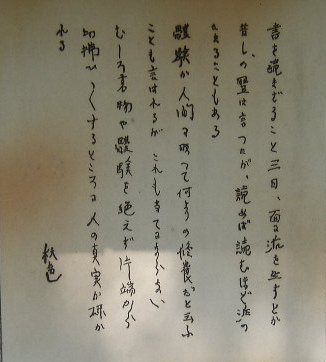 書を読まざること三日、面に垢を生ずとか
昔しの聖は言つたが、読めば読むほど垢の
たまることもある
體験が人間に取つて何よりの修養だと云ふ
ことも言はれるが、これも当てにならない
むしろ書物や體験を絶えず片端から
切拂ひ〱するところに人の真実が研か
れる
秋江